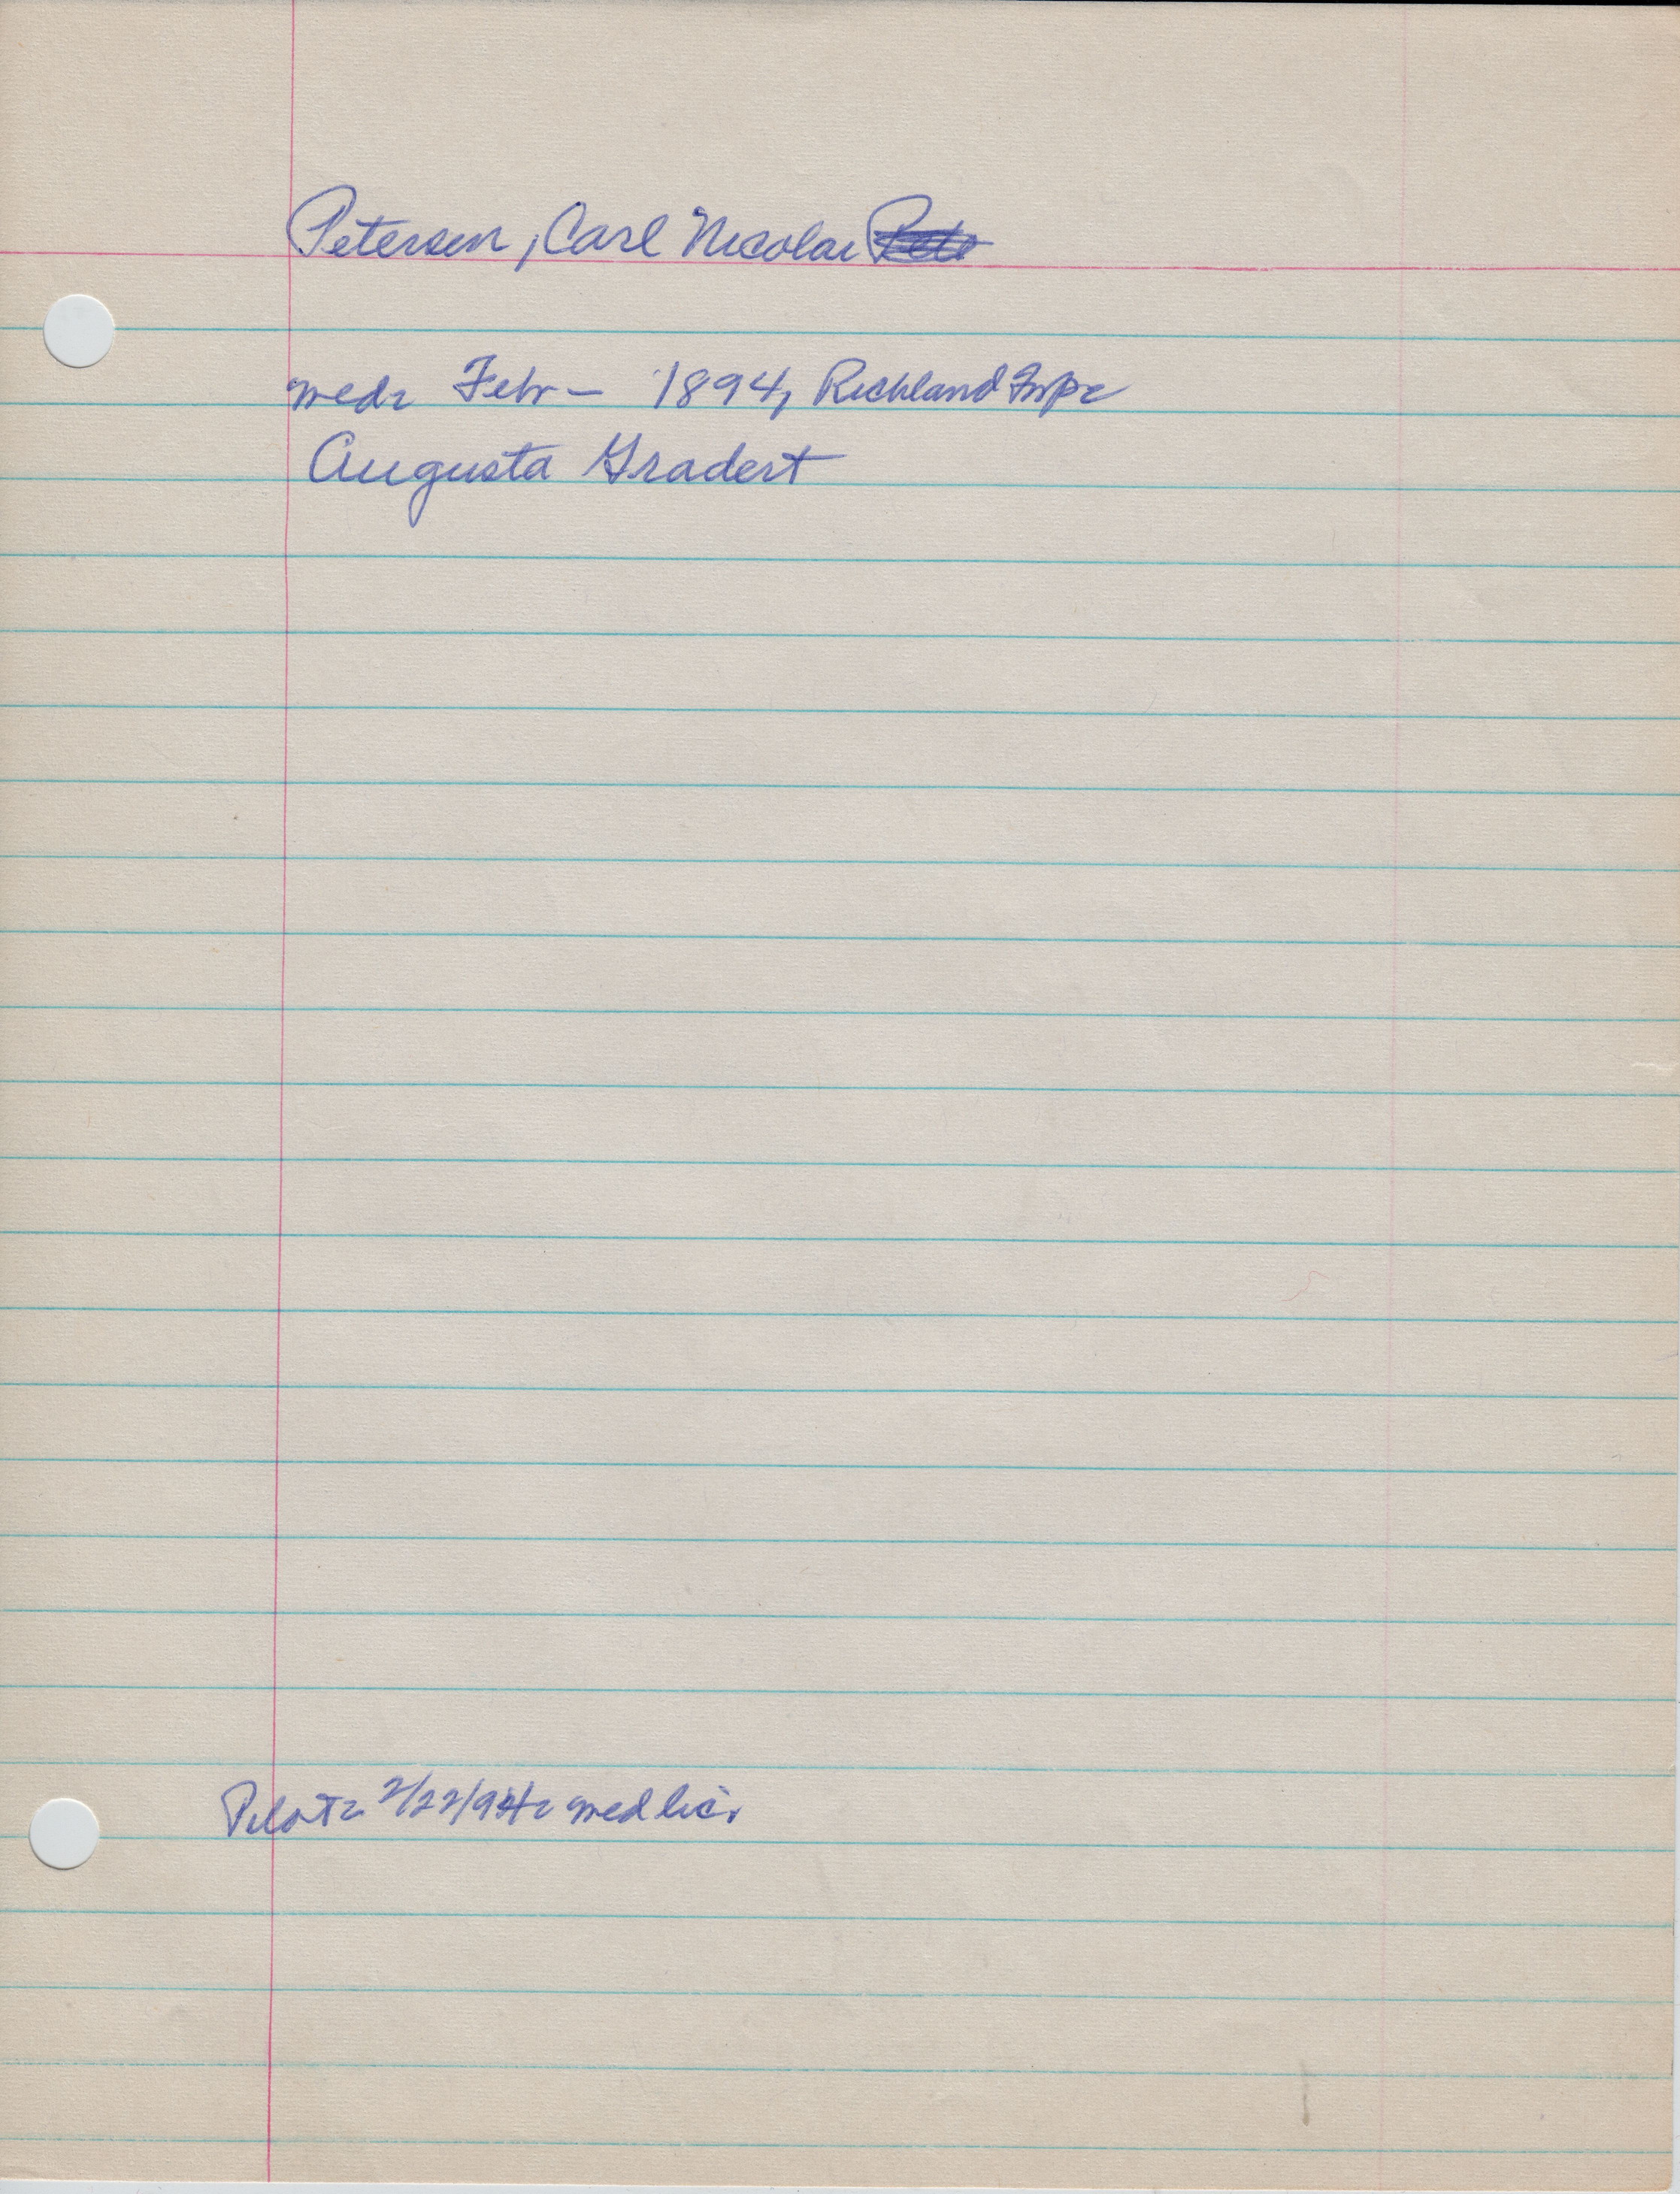 Petersen, Carl Nicolai
med: Febr – 1894, Richland Twp:
Augusta Gradert
Pilot: 2/22/94: med lic.